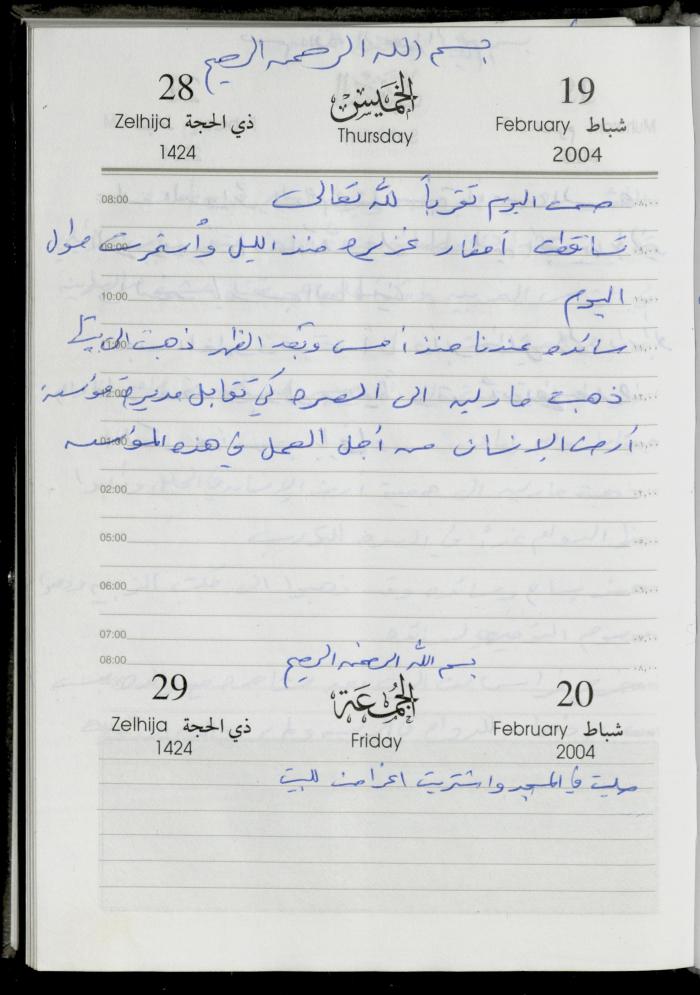 بسم الله الرحمن الرحيم
28 الخميس 19
Zelhija ذي الحجة Thursday February شباط
1424 2004
08:00 صمت اليوم تقرباً لله تعالى
09:00 تساقطت أمطار غزيره منذ الليل وأستمرت طوال
10:00 اليوم
11:00 سائده عندنا منذ أمس وبعد الظهر ذهبت الى بيتها
12:00 ذهبت مادلين الى الصرح كي تقابل مديرة مؤسسة
01:00 أرض الإنسان من أجل العمل في هذه المؤسسه
02:00
05:00
06:00
07:00
08:00 بسم الله الرحمن الرحيم
29 الجمعة 20
Zelhija ذي الحجة Friday February شباط
1424 2004
صليت في المسجد واشتريت اغراض للبيت